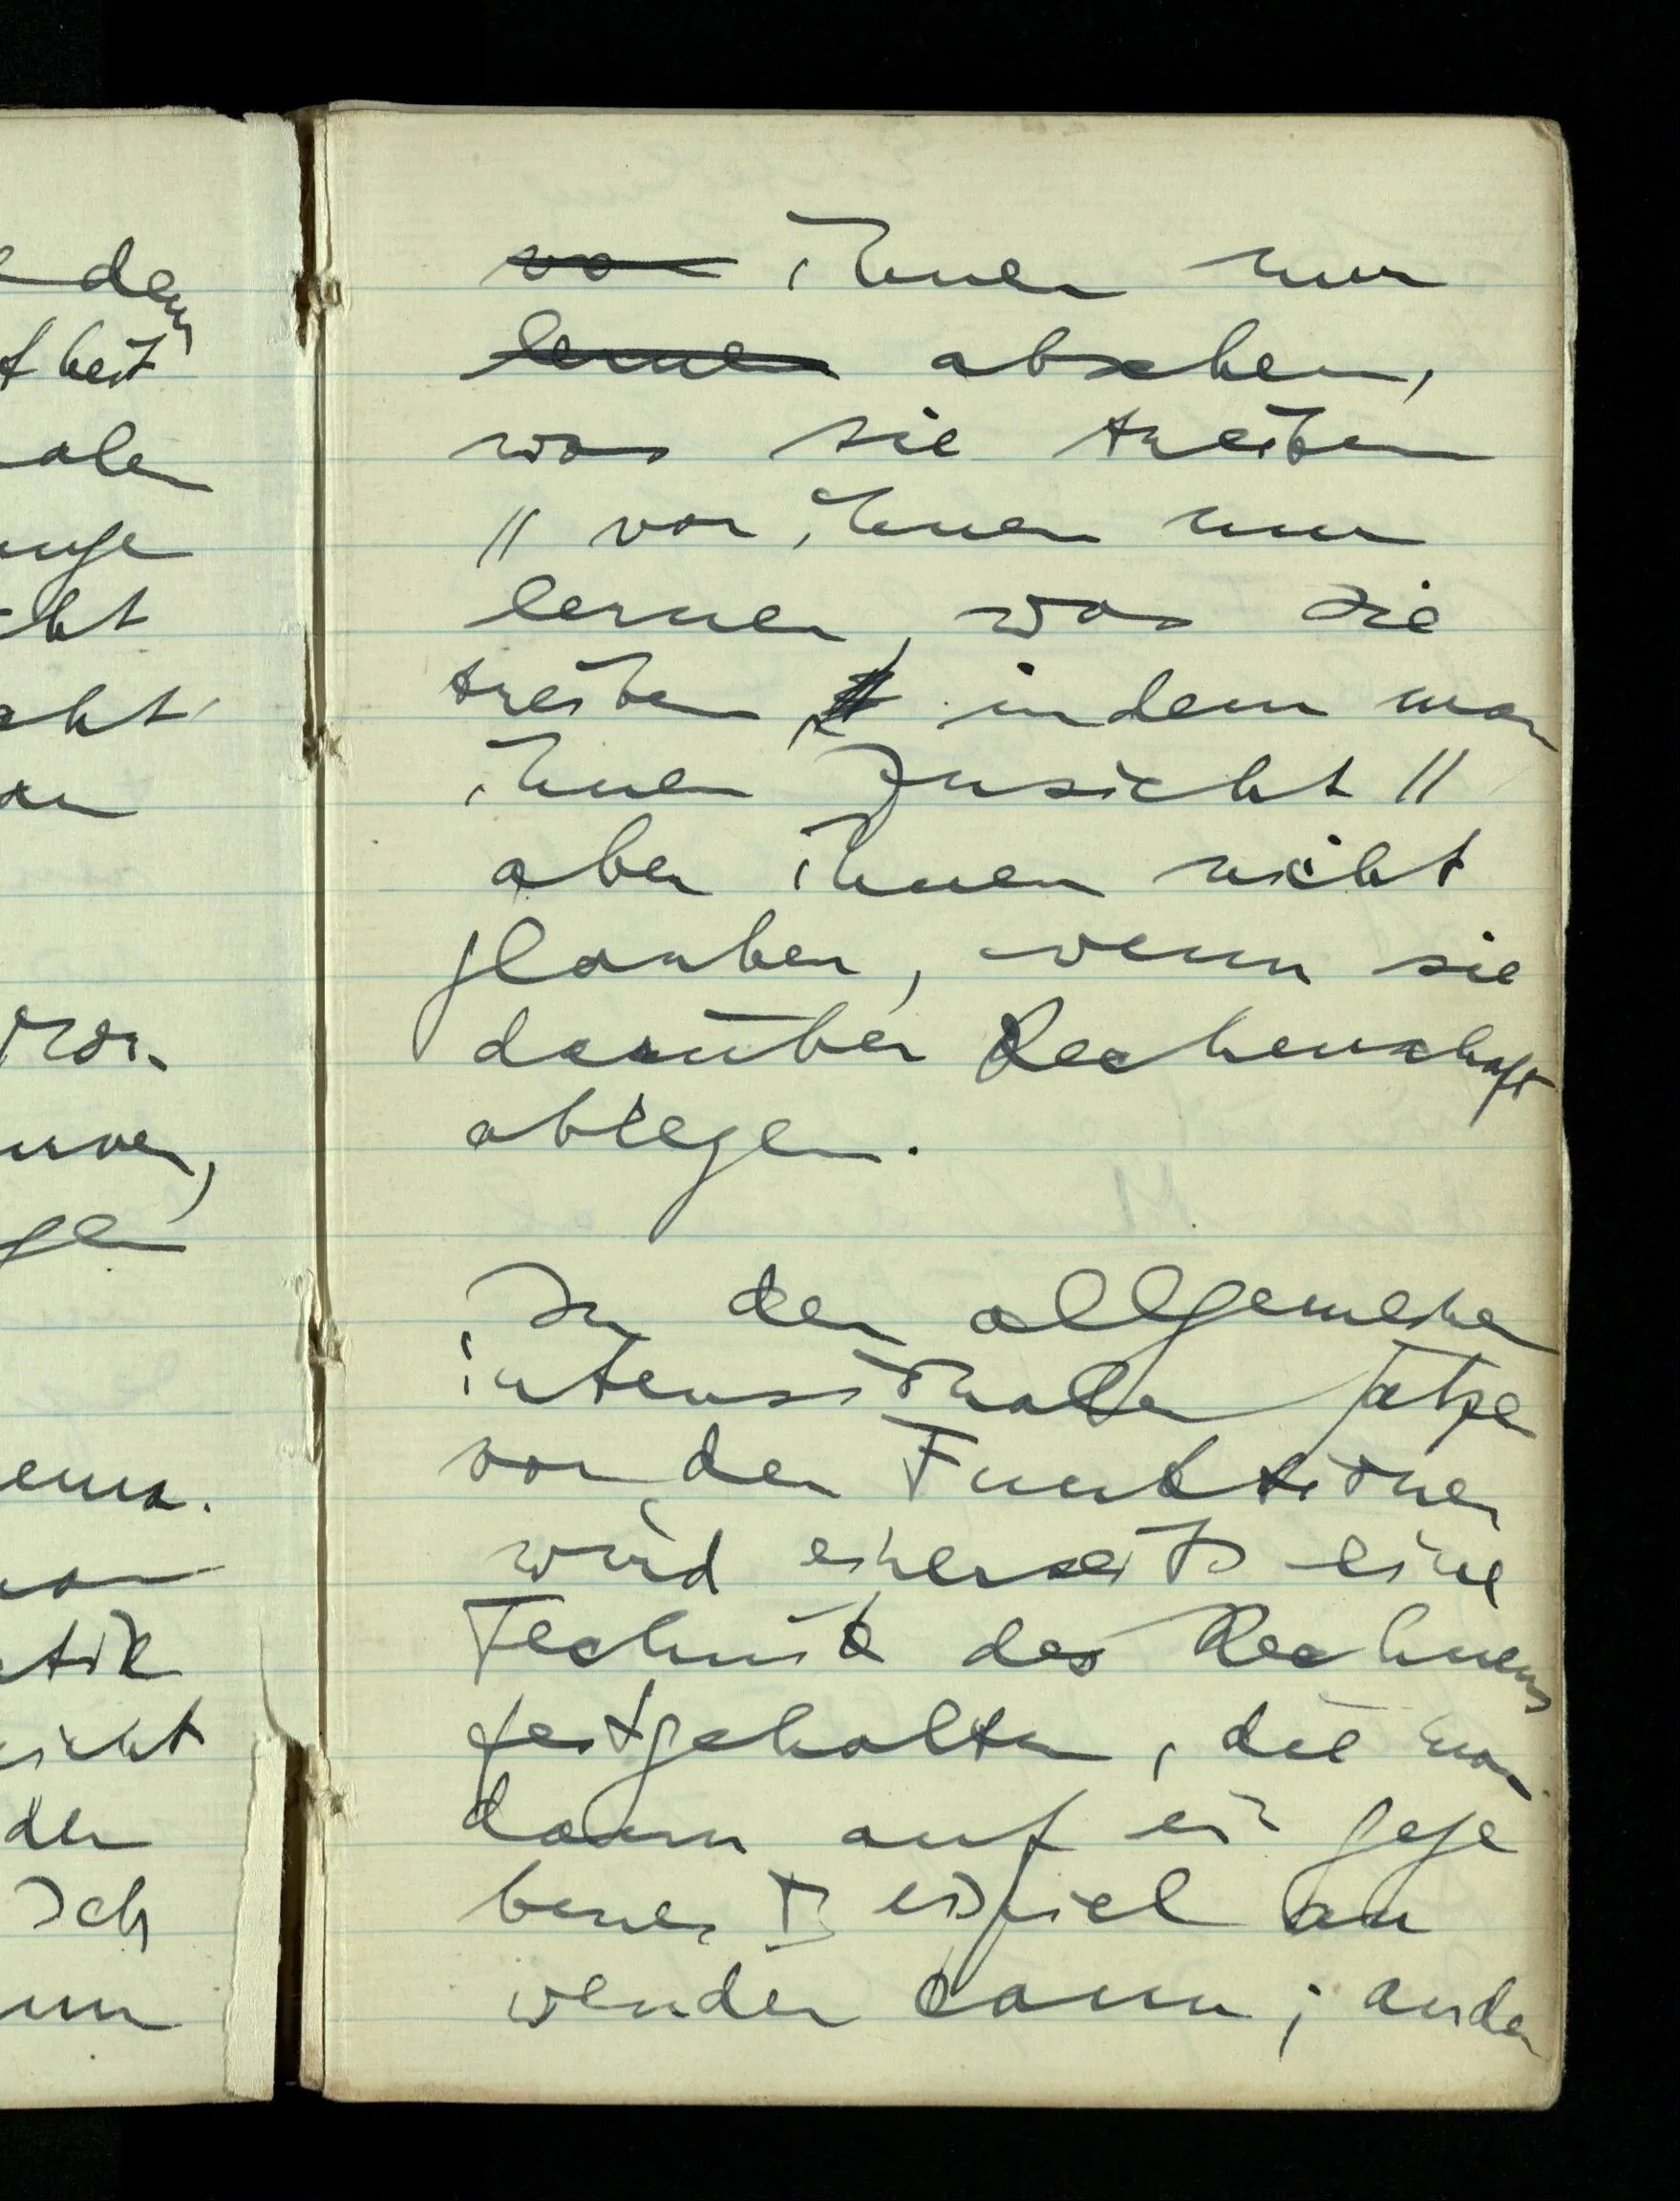 dem
heit
ht
cht
an
ema.
atik
nicht
der
Ich
von ihnen nur
lernen absehen,
was sie treiben
// von ihnen nur
lernen, was sie
treiben, indem man
ihnen zusieht //
aber ihnen nicht
glauben, wenn sie
darüber Rechenschaft
ablegen.
In den allgemeinen
intensionalen Sätzen
von den Funktionen
wird einerseits eine
Technik des Rechnens
festgehalten, die man
dann auf ein gege
benes Beispiel an
wenden kann; ander